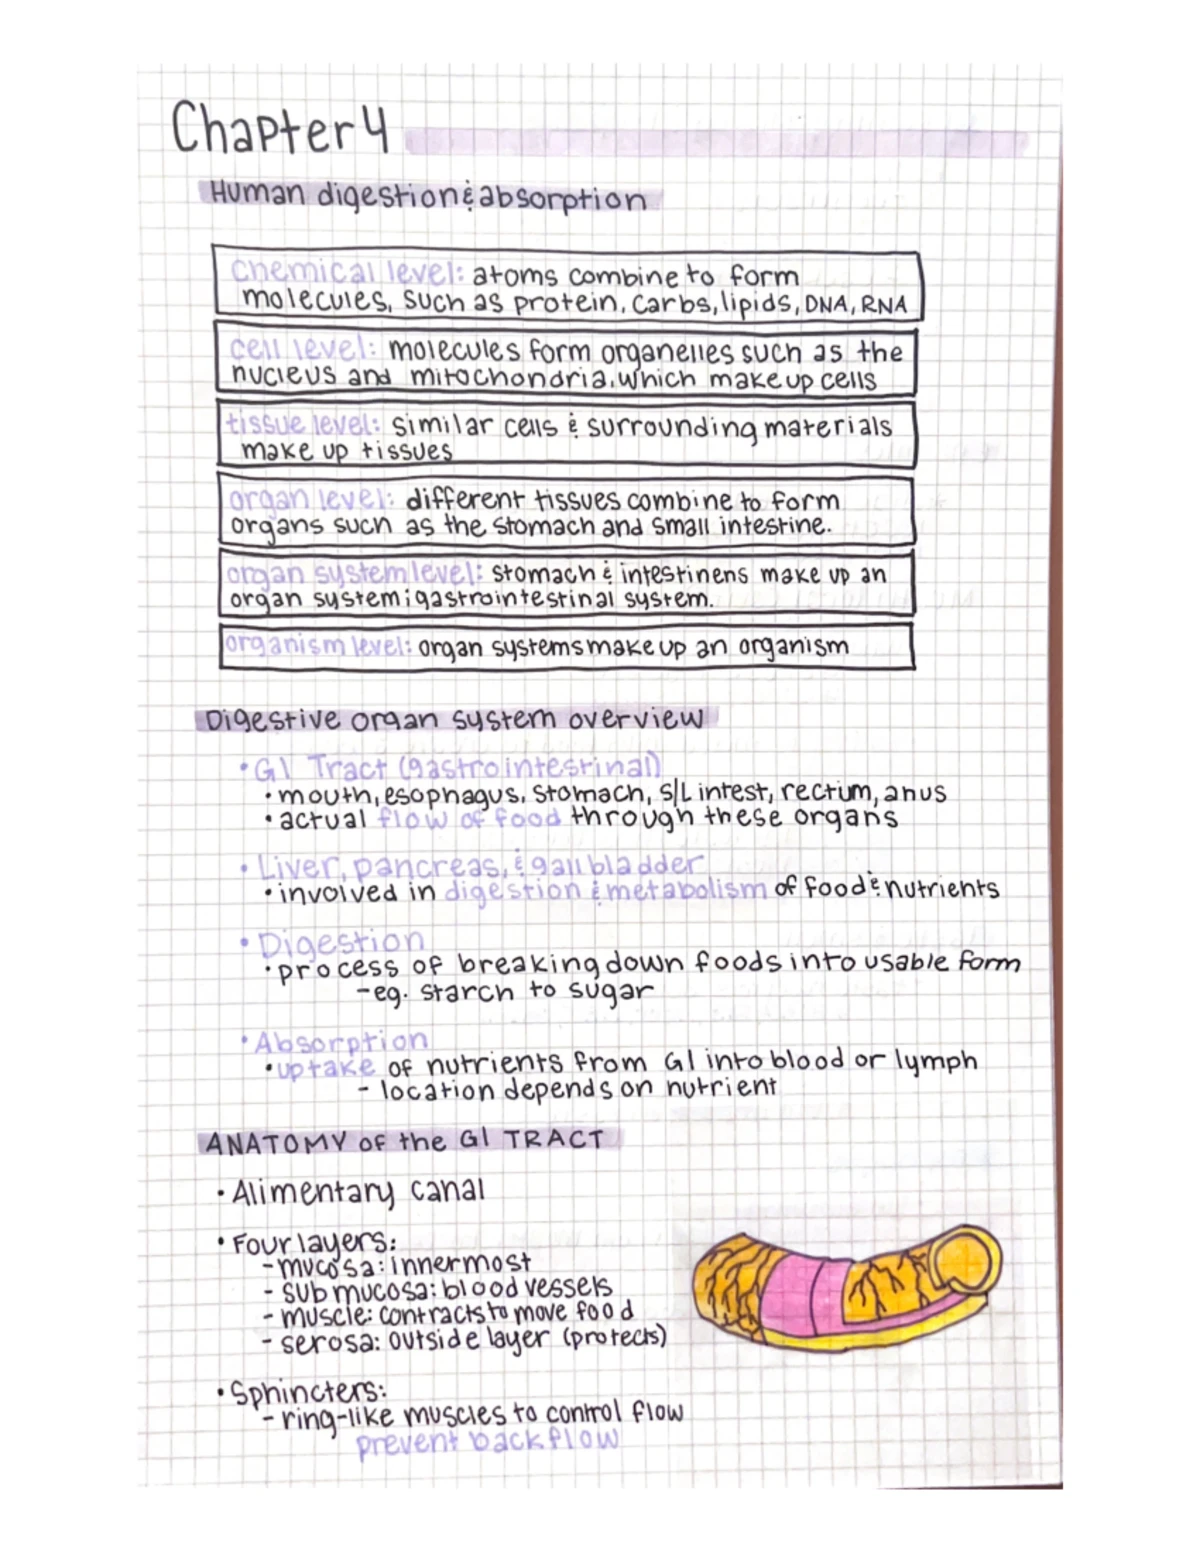 Chapter 4
Human digestion & absorption
Chemical level: atoms combine to form
molecules, such as protein, carbs, lipids, DNA, RNA
cell level: molecules form organelles such as the
nucleus and mitochondria, which make up cells
tissue level: similar cells & surrounding materials
make up tissues
organ level: different tissues combine to form
organs such as the stomach and small intestine.
organ system level: stomach & intestinens make up an
organ system; gastrointestinal system.
organism level: organ systems make up an organism
Digestive organ system overview
• GI Tract (gastrointestinal)
• mouth, esophagus, stomach, S/L intest, rectum, anus
• actual flow of food through these organs
• Liver, pancreas, & gallbladder
• involved in digestion & metabolism of food & nutrients
• Digestion
• process of breaking down foods into usable form
- eg. starch to sugar
• Absorption
• uptake of nutrients from GI into blood or lymph
- location depends on nutrient
ANATOMY of the GI TRACT
• Alimentary canal
• Four layers:
- mucosa: innermost
- submucosa: blood vessels
- muscle: contracts to move food
- serosa: outside layer (protects)
• Sphincters:
- ring-like muscles to control flow
prevent backflow